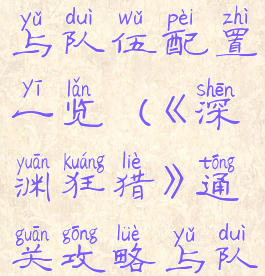 yǔ duì wǔ pèi zhì
与队伍配置
yī lǎn shēn
一览（《深
yuān kuáng liè tōng
渊狂猎》通
guān gōng lüè yǔ duì
关攻略与队